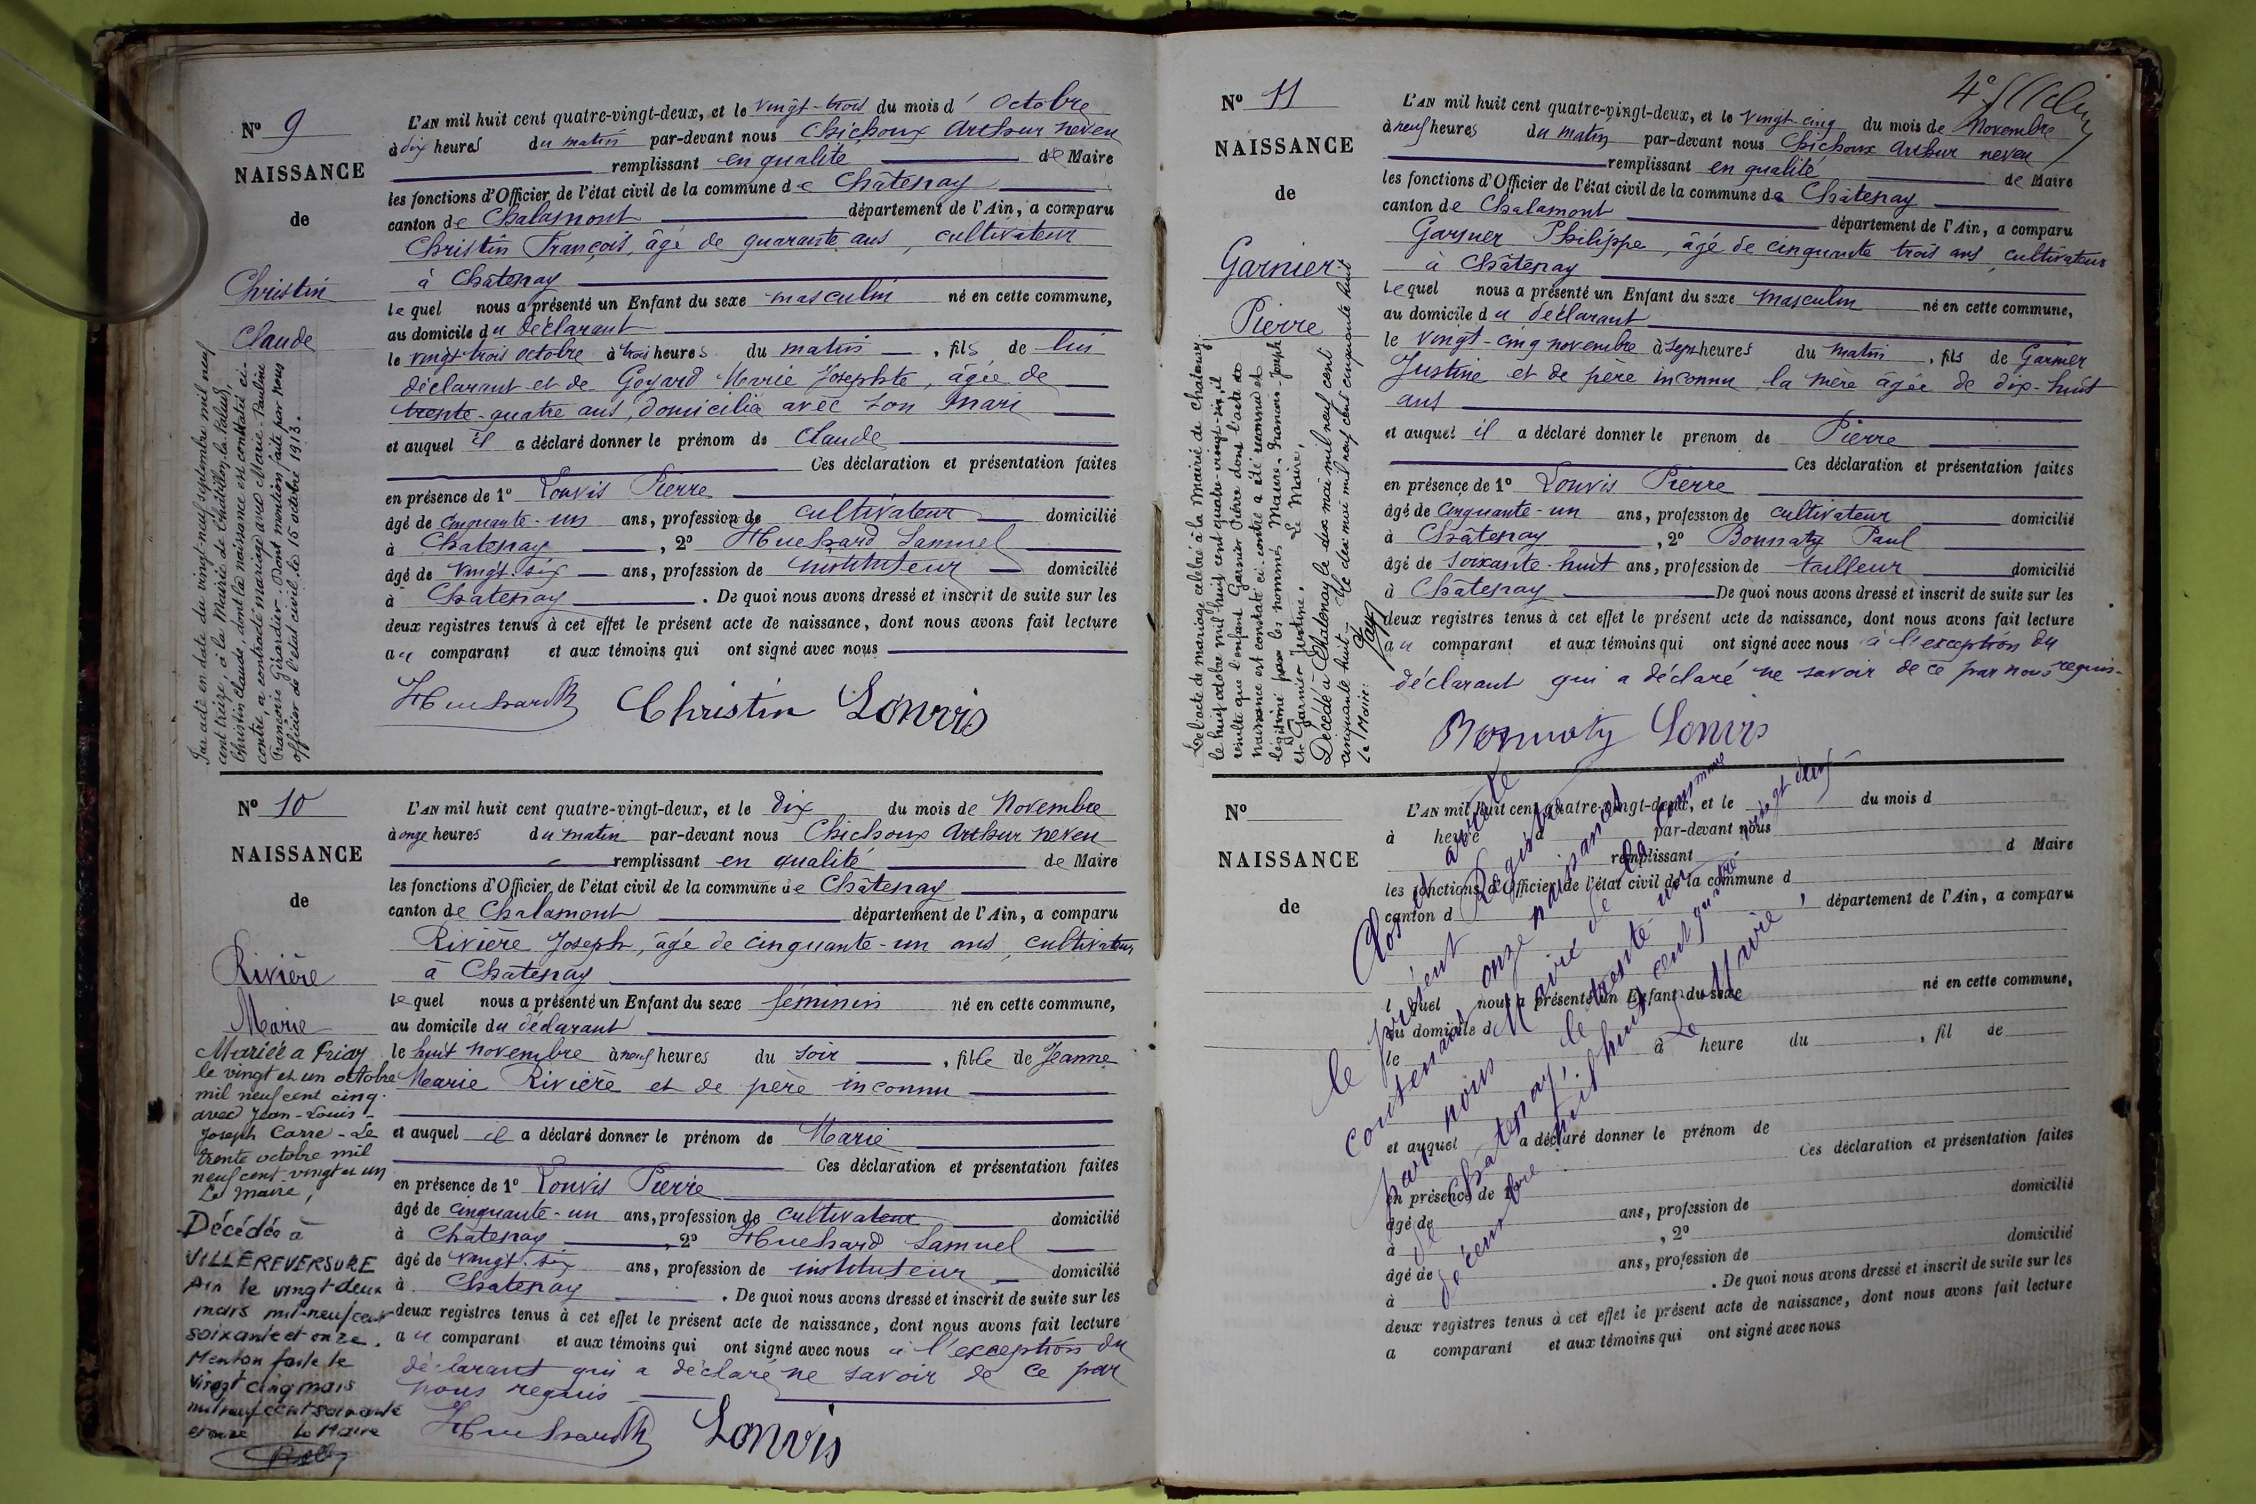 Nº 9
NAISSANCE
de
Christin
Claude
Par acte en date du vingt-neuf septembre mil neuf
cent treize, à la Mairie de Châtillon-la-Palud,
Christin Claude, dont la naissance est constatée ci-
contre, a contracté mariage avec Marie-Pauline
Françoise Girardier. Dont mention faite par nous
officier de l'état civil le 15 octobre 1913.
L'AN mil huit cent quatre-vingt-deux, et le vingt-trois du mois d' Octobre
à dix heures du matin par-devant nous Chichoux Arthur neveu
remplissant en qualité de Maire
les fonctions d'Officier de l'état civil de la commune de Châtenay
canton de Chalamont département de l'Ain, a comparu
Christin François, âgé de quarante ans, cultivateur
à Châtenay
lequel nous a présenté un Enfant du sexe masculin né en cette commune,
au domicile du déclarant
le vingt-trois octobre à trois heures du matin, fils de lui
déclarant et de Goyard Marie Josephte, âgée de
trente-quatre ans, domiciliée avec son mari
et auquel il a déclaré donner le prénom de Claude
Ces déclaration et présentation faites
en présence de 1º Louvis Pierre
âgé de cinquante-un ans, profession de cultivateur domicilié
à Châtenay, 2º Huchard Samuel
âgé de vingt-six ans, profession de instituteur domicilié
à Châtenay. De quoi nous avons dressé et inscrit de suite sur les
deux registres tenus à cet effet le présent acte de naissance, dont nous avons fait lecture
au comparant et aux témoins qui ont signé avec nous
Huchard Christin Louvis
Nº 10
NAISSANCE
de
Rivière
Marie
Mariée à Priay
le vingt et un octobre
mil neuf cent cinq
avec Jean-Louis-
Joseph Carre - Le
trente octobre mil
neuf cent vingt et un
Le maire,
Décédée à
VILLEREVERSURE
Ain le vingt-deux
mars mil-neuf cent
soixante et onze.
Mention faite le
vingt cinq mars
mil neuf cent soixante
et onze Le Maire
L'AN mil huit cent quatre-vingt-deux, et le dix du mois de Novembre
à onze heures du matin par-devant nous Chichoux Arthur neveu
remplissant en qualité de Maire
les fonctions d'Officier de l'état civil de la commune de Châtenay
canton de Chalamont département de l'Ain, a comparu
Rivière Joseph, âgé de cinquante-un ans, cultivateur
à Châtenay
lequel nous a présenté un Enfant du sexe féminin né en cette commune,
au domicile du déclarant
le huit novembre à neuf heures du soir, fille de Jeanne
Marie Rivière et de père inconnu
et auquel il a déclaré donner le prénom de Marie
Ces déclaration et présentation faites
en présence de 1º Louvis Pierre
âgé de cinquante-un ans, profession de cultivateur domicilié
à Châtenay, 2º Huchard Samuel
âgé de vingt-six ans, profession de instituteur domicilié
à Châtenay. De quoi nous avons dressé et inscrit de suite sur les
deux registres tenus à cet effet le présent acte de naissance, dont nous avons fait lecture
au comparant et aux témoins qui ont signé avec nous à l'exception du
déclarant qui a déclaré ne savoir de ce par
nous requis
Huchard Louvis
4e
Nº 11
NAISSANCE
de
Garnier
Pierre
De l'acte de mariage célébré à la Mairie de Chatenay,
le huit octobre mil huit cent quatre-vingt-six, il
résulte que l'enfant Garnier Pierre dont l'acte de
naissance est constaté ci-contre a été reconnu et
légitimé par les nommés Maure, Francois-Joseph
et Garnier Justine. Le Maire,
Décédé à Chatenay le deux mai mil neuf cent
cinquante huit. Le deux mai mil neuf cent cinquante huit
Le Maire:
L'AN mil huit cent quatre-vingt-deux, et le vingt-cinq du mois de Novembre
à neuf heures du matin par-devant nous Chichoux Arthur neveu
remplissant en qualité de Maire
les fonctions d'Officier de l'état civil de la commune de Châtenay
canton de Chalamont département de l'Ain, a comparu
Garnier Philippe, âgé de cinquante trois ans, cultivateur
à Châtenay
lequel nous a présenté un Enfant du sexe masculin né en cette commune,
au domicile du déclarant
le vingt-cinq novembre à sept heures du matin, fils de Garnier
Justine et de père inconnu la mère âgée de dix-huit
ans
et auquel il a déclaré donner le prenom de Pierre
Ces déclaration et présentation faites
en présence de 1º Louvis Pierre
âgé de cinquante-un ans, profession de cultivateur domicilié
à Châtenay, 2º Bonnaty Paul
âgé de soixante-huit ans, profession de tailleur domicilié
à Châtenay De quoi nous avons dressé et inscrit de suite sur les
deux registres tenus à cet effet le présent acte de naissance, dont nous avons fait lecture
au comparant et aux témoins qui ont signé avec nous à l'exception du
déclarant qui a déclaré ne savoir de ce par nous requis.
Bonnaty Louvis
Nº
NAISSANCE
de
L'AN mil huit cent quatre-vingt-deux, et le du mois d
à heure d par-devant nous
remplissant d Maire
les fonctions d'Officier de l'état civil de la commune d
canton d département de l'Ain, a comparu
l quel nous a présenté un Enfant du sexe né en cette commune,
au domicile d
le à heure du , fil de
et auquel a déclaré donner le prénom de
Ces déclaration et présentation faites
en présence de 1º
âgé de ans, profession de domicilié
à , 2º
âgé de ans, profession de domicilié
à . De quoi nous avons dressé et inscrit de suite sur les
deux registres tenus à cet effet le présent acte de naissance, dont nous avons fait lecture
a comparant et aux témoins qui ont signé avec nous
Clos et arrêté
le présent Registre
contenant onze naissances
par nous Maire de la commune
de Châtenay, le trente un
décembre mil huit cent quatre vingt deux
Le Maire,